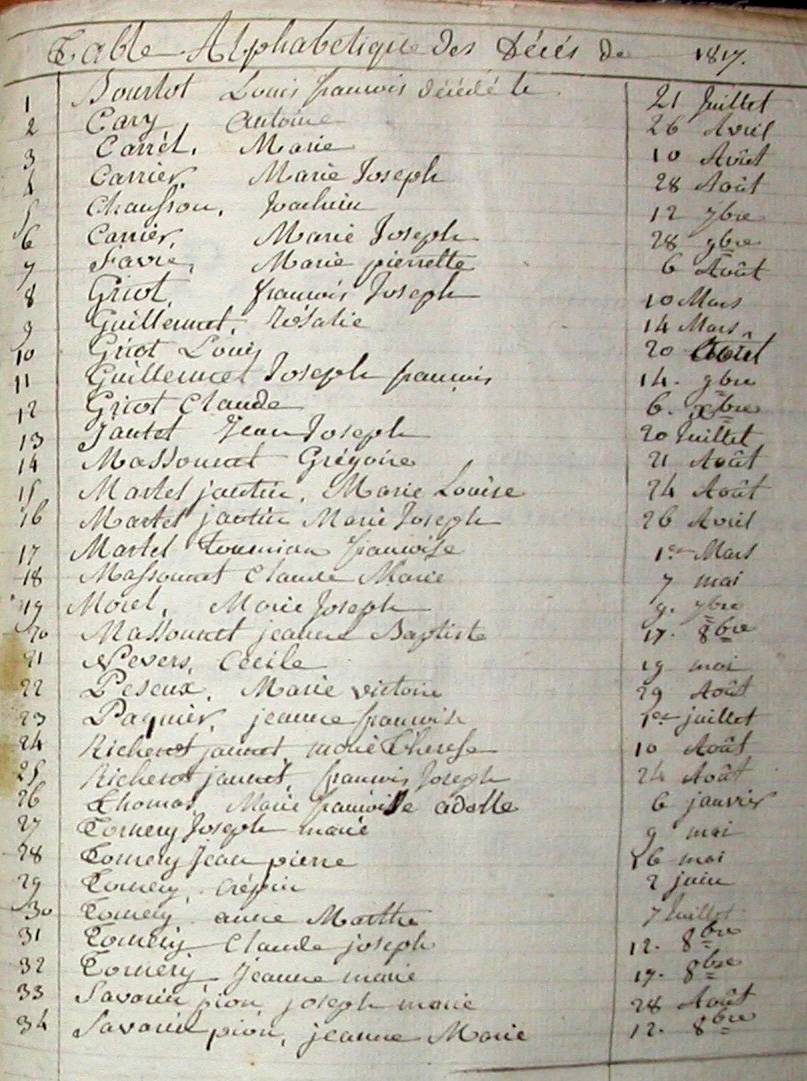 Table Alphabetique des Décés de 1817.
1 Bourlot Louis francois décédé le 21 Juillet
2 Cary Antoine 26 Avril
3 Carrél. Marie 10 Août
4 Carrier, Marie Joseph 28 Août
5 Chausson, Joachim 12 7bre
6 Carriér, Marie Joseph 28 9bre
7 Favre, Marie pierrette 6 Août
8 Griot, francois Joseph 10 Mars
9 Guillemet, Rosalie 14 Mars
10 Griot Louis 20 Août
11 Guillemet Joseph francois 14. 9bre
12 Griot Claude 6. xbre
13 Jautet Jean Joseph 20 Juillet
14 Massonnet Grégoire 21 Août
15 Martel jantin, Marie Louise 24 Août
16 Martel jantin Marie Joseph 26 Avril
17 Martel francoise 1er Mars
18 Massonnet Claude Marie 7 mai
19 Morel, Marie Joseph 9. 7bre
20 Massonnet jeanne Baptiste 17. 8bre
21 Nevers, Cécile 19 mai
22 Peseux, Marie victoire 29 Août
23 Paquier, jeanne francoise 1er juillet
24 Richerot jaunet marie Therese 10 Août
25 Richerot jaunet francois Joseph 24 Août
26 Thomas, Marie francoise adelle 6 janvier
27 Tornery Joseph marie 9 mai
28 Tornery Jean pierre 26 mai
29 Tornery, crépin 2 juin
30 Tornery anne Marthe 7 Juillet
31 Tornery Claude joseph 12. 8bre
32 Tornery Jeanne marie 17. 8bre
33 Savarin pion, joseph marie 28 Août
34 Savarin pion, jeanne Marie 12. 8bre